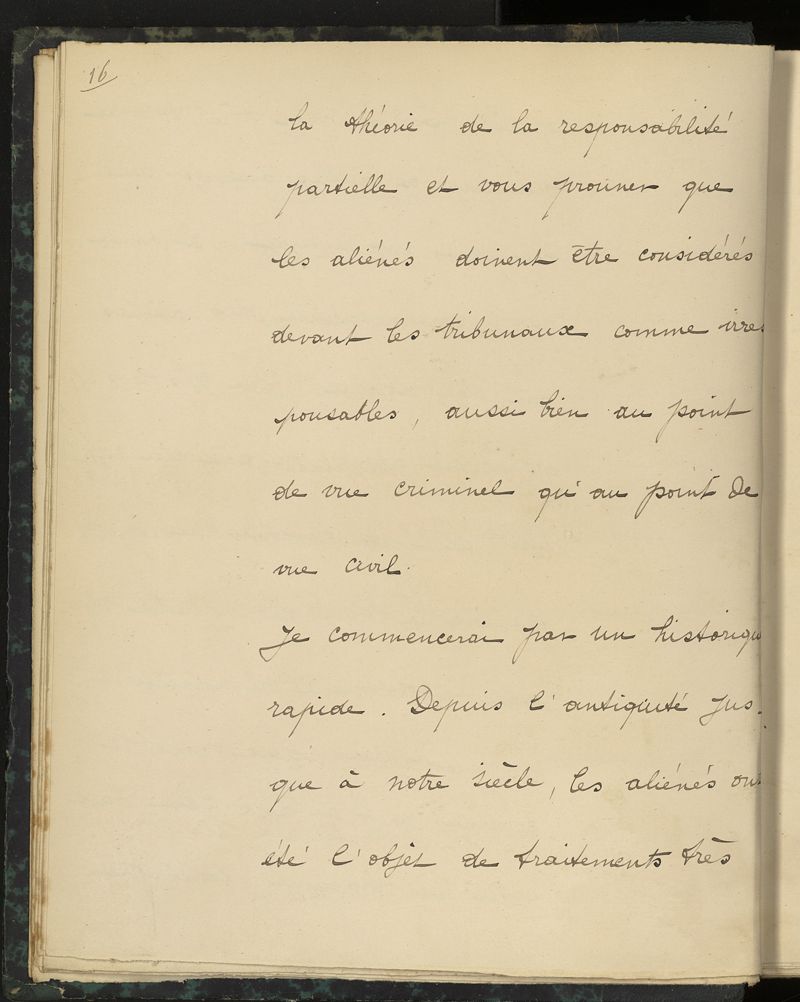 16
la théorie de la responsabilité
partielle et vous prouver que
les aliénés doivent être considérés
devant les tribunaux comme irres
ponsables, aussi bien au point
de vue criminel qu'au point de
vue civil.
Je commencerai par un historique
rapide. Depuis l'antiquité jus-
que à notre siècle, les aliénés ont
été l'objet de traitements très